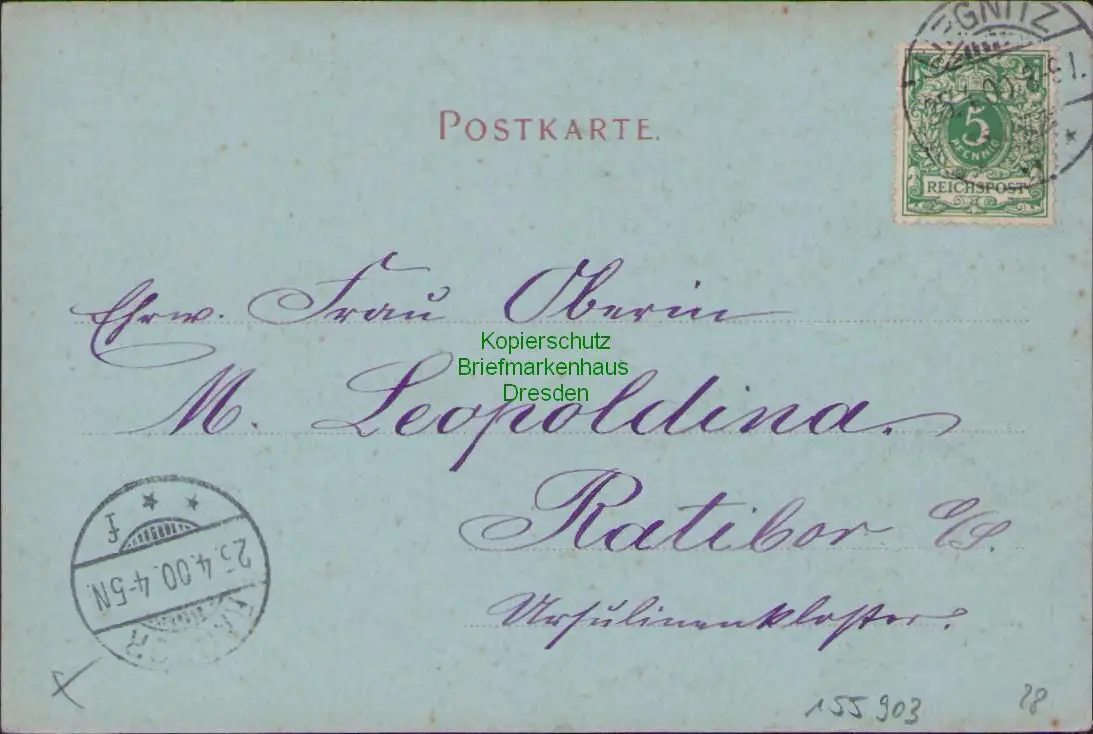 POSTKARTE.
GNITZ
5
PFENNIG
REICHSPOST
Ehrw. Frau Oberin
Kopierschutz
Briefmarkenhaus
Dresden
M. Leopoldina.
Ratibor o/S.
Ursulinenkloster.
f
23.4.00.4-5N.
155903
28